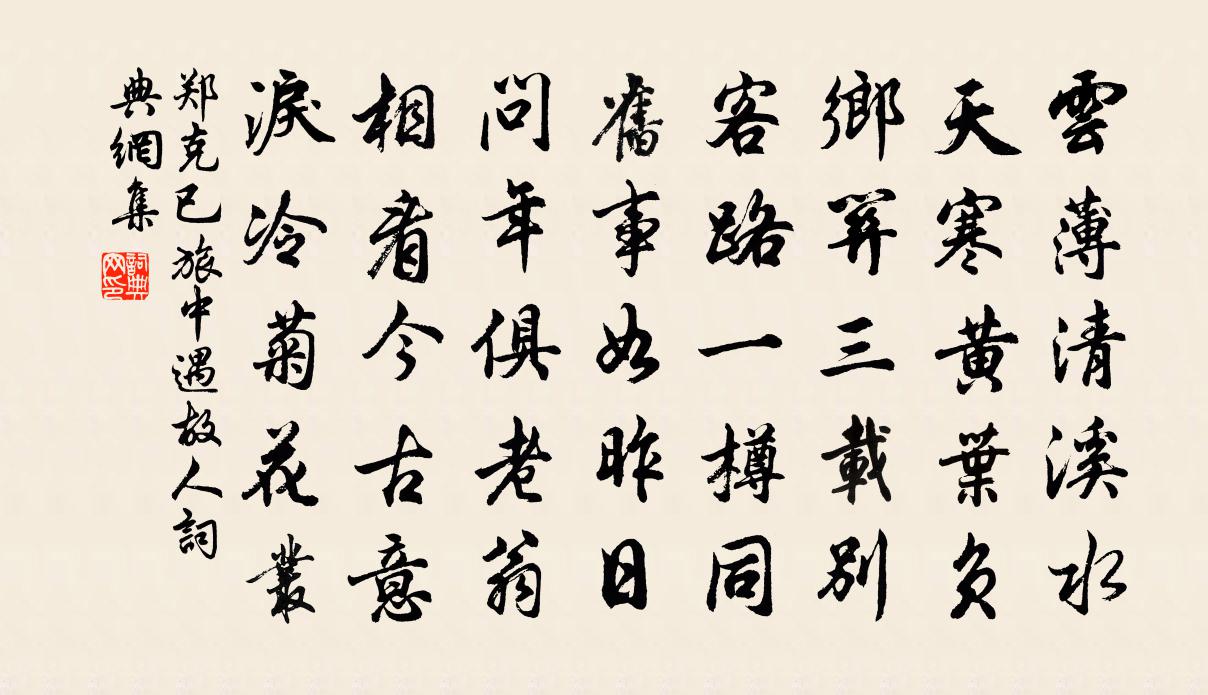 雲薄清溪水
天寒黃葉風
鄉關三載別
客路一樽同
舊事如昨日
問年俱老翁
相看今古意
淚冷菊花叢
郑克已 旅中遇故人 詞
典網集
詞典
网印